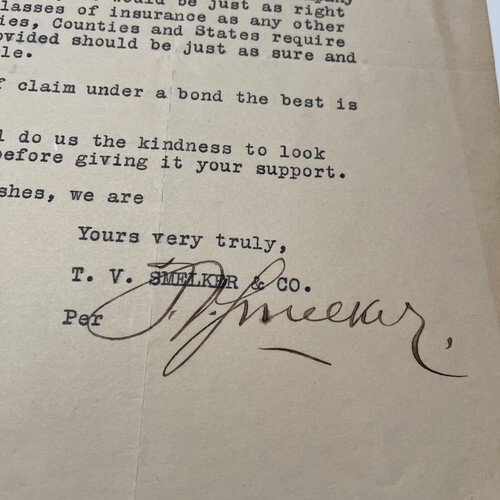 would be just as right
lasses of insurance as any other
ies, Counties and States require
ovided should be just as sure and
le.
f claim under a bond the best is
l do us the kindness to look
before giving it your support.
shes, we are
Yours very truly,
T. V. SMELKER & CO.
Per T. V. Smelker.